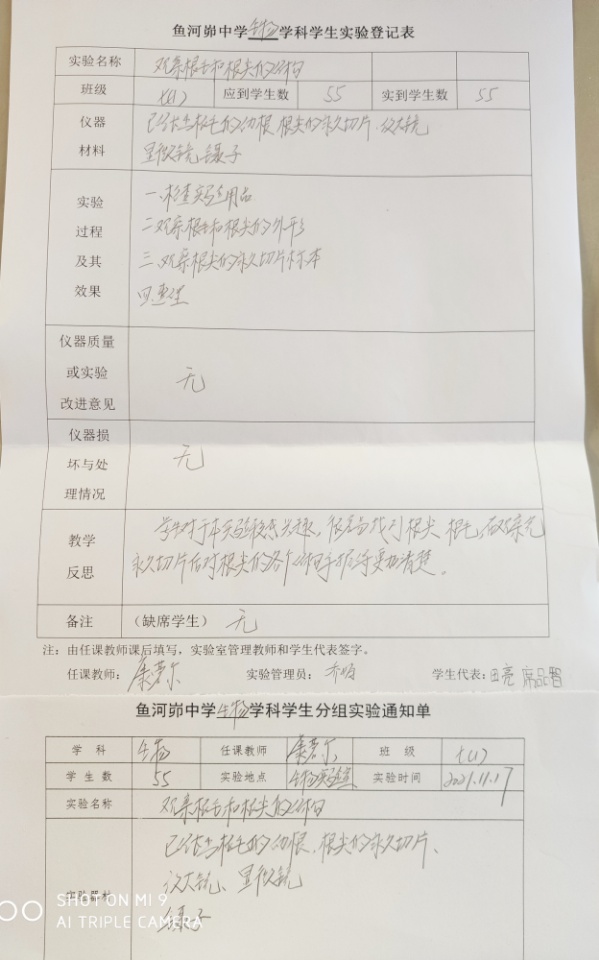 鱼河峁中学生物学科学生实验登记表
实验名称 观察根毛和根尖的结构
班级 七(1) 应到学生数 55 实到学生数 55
仪器
材料
已长出根毛的幼根、根尖的永久切片、放大镜
显微镜、镊子
实验
过程
及其
效果
一、检查实验用品
二、观察根毛和根尖的外形
三、观察根尖的永久切片标本
四、整理
仪器质量
或实验
改进意见
无
仪器损
坏与处
理情况
无
教学
反思
学生对于本实验较感兴趣,很容易找到根尖、根毛,
永久切片后对根尖的各个清楚。
备注 (缺席学生) 无
注:由任课教师课后填写,实验室管理教师和学生代表签字。
任课教师: 实验管理员: 学生代表:田亮 席品智
鱼河峁中学生物学科学生分组实验通知单
学 科 生物 任课教师 班 级 七(1)
学 生 数 55 实验地点 生物实验室 实验时间 2021.11.17
实验名称 观察根毛和根尖的结构
实验器材
已长出根毛的幼根、根尖的永久切片、
放大镜、显微镜
镊子
SHOT ON MI 9
AI TRIPLE CAMERA